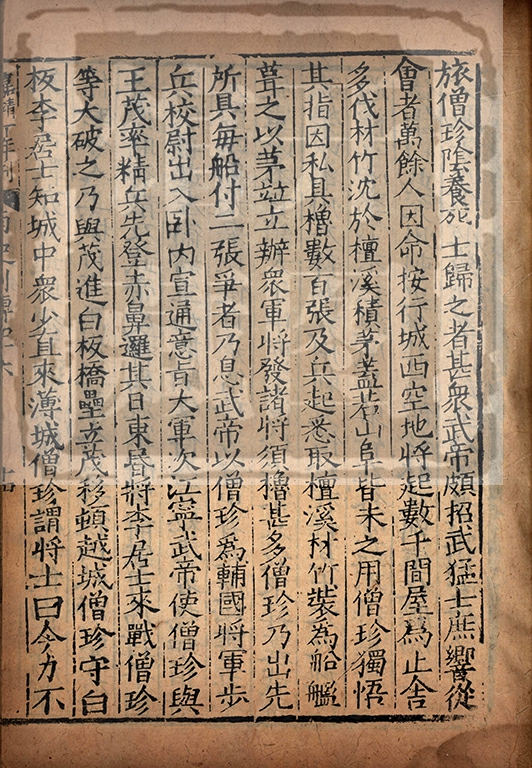 旅僧珍陰養死士歸之者甚衆武帝頗招武猛士庶響從
會者萬餘人因命按行城西空地將起數千間屋爲止舍
多伐材竹沈於檀溪積茅蓋若山阜皆未之用僧珍獨悟
其指因私具櫓數百張及兵起悉取檀溪材竹裝爲船艦
葺之以茅竝立辦衆軍將發諸將須櫓甚多僧珍乃出先
所具每船付二張爭者乃息武帝以僧珍爲輔國將軍步
兵校尉出入卧内宣通意旨大軍次江寧武帝使僧珍與
王茂率精兵先登赤鼻邏其日東昏將李居士來戰僧珍
等大破之乃與茂進白板橋壘立茂移頓越城僧珍守白
板李居士知城中衆少直來薄城僧珍謂將士曰今力不